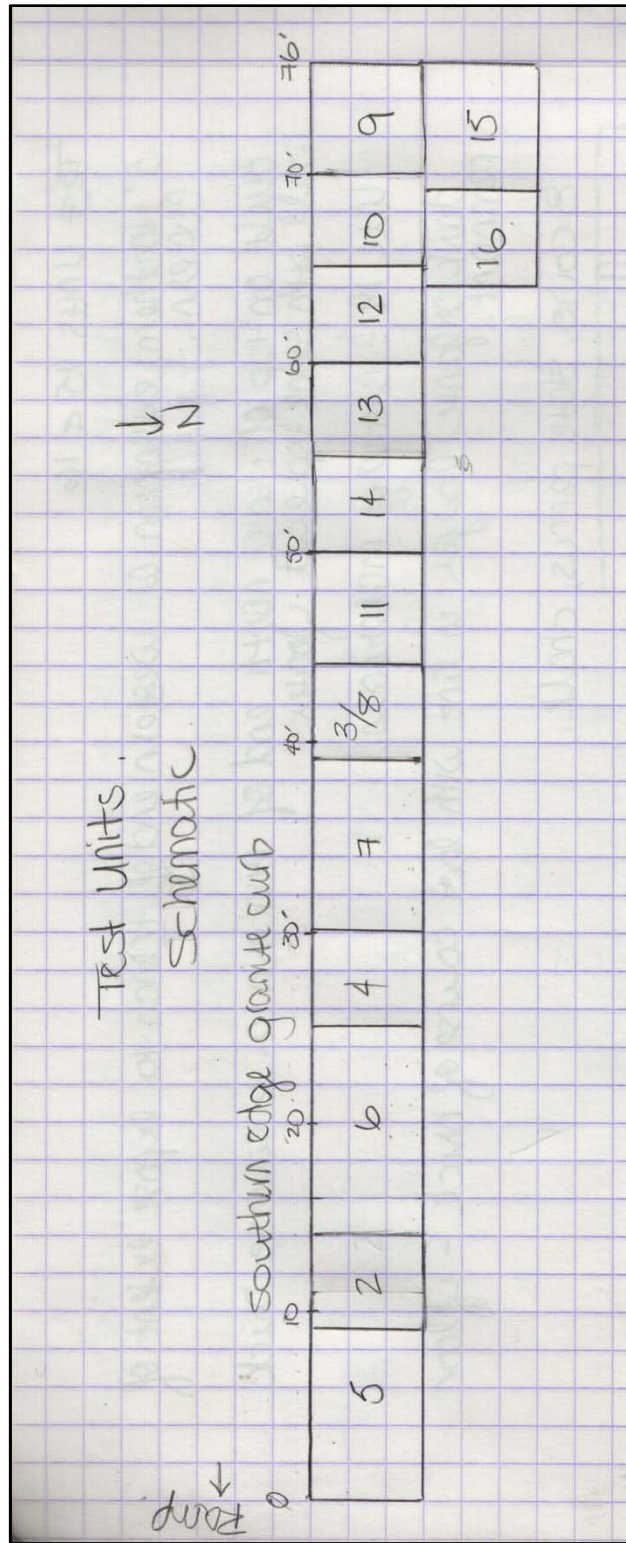 Test Units.
Schematic
Ramp
↓ N
southern edge granite curb
0 10 20 30' 40' 50' 60' 70' 76'
5 2 6 4 7 3/8 11 14 13 12 10 9
16 15